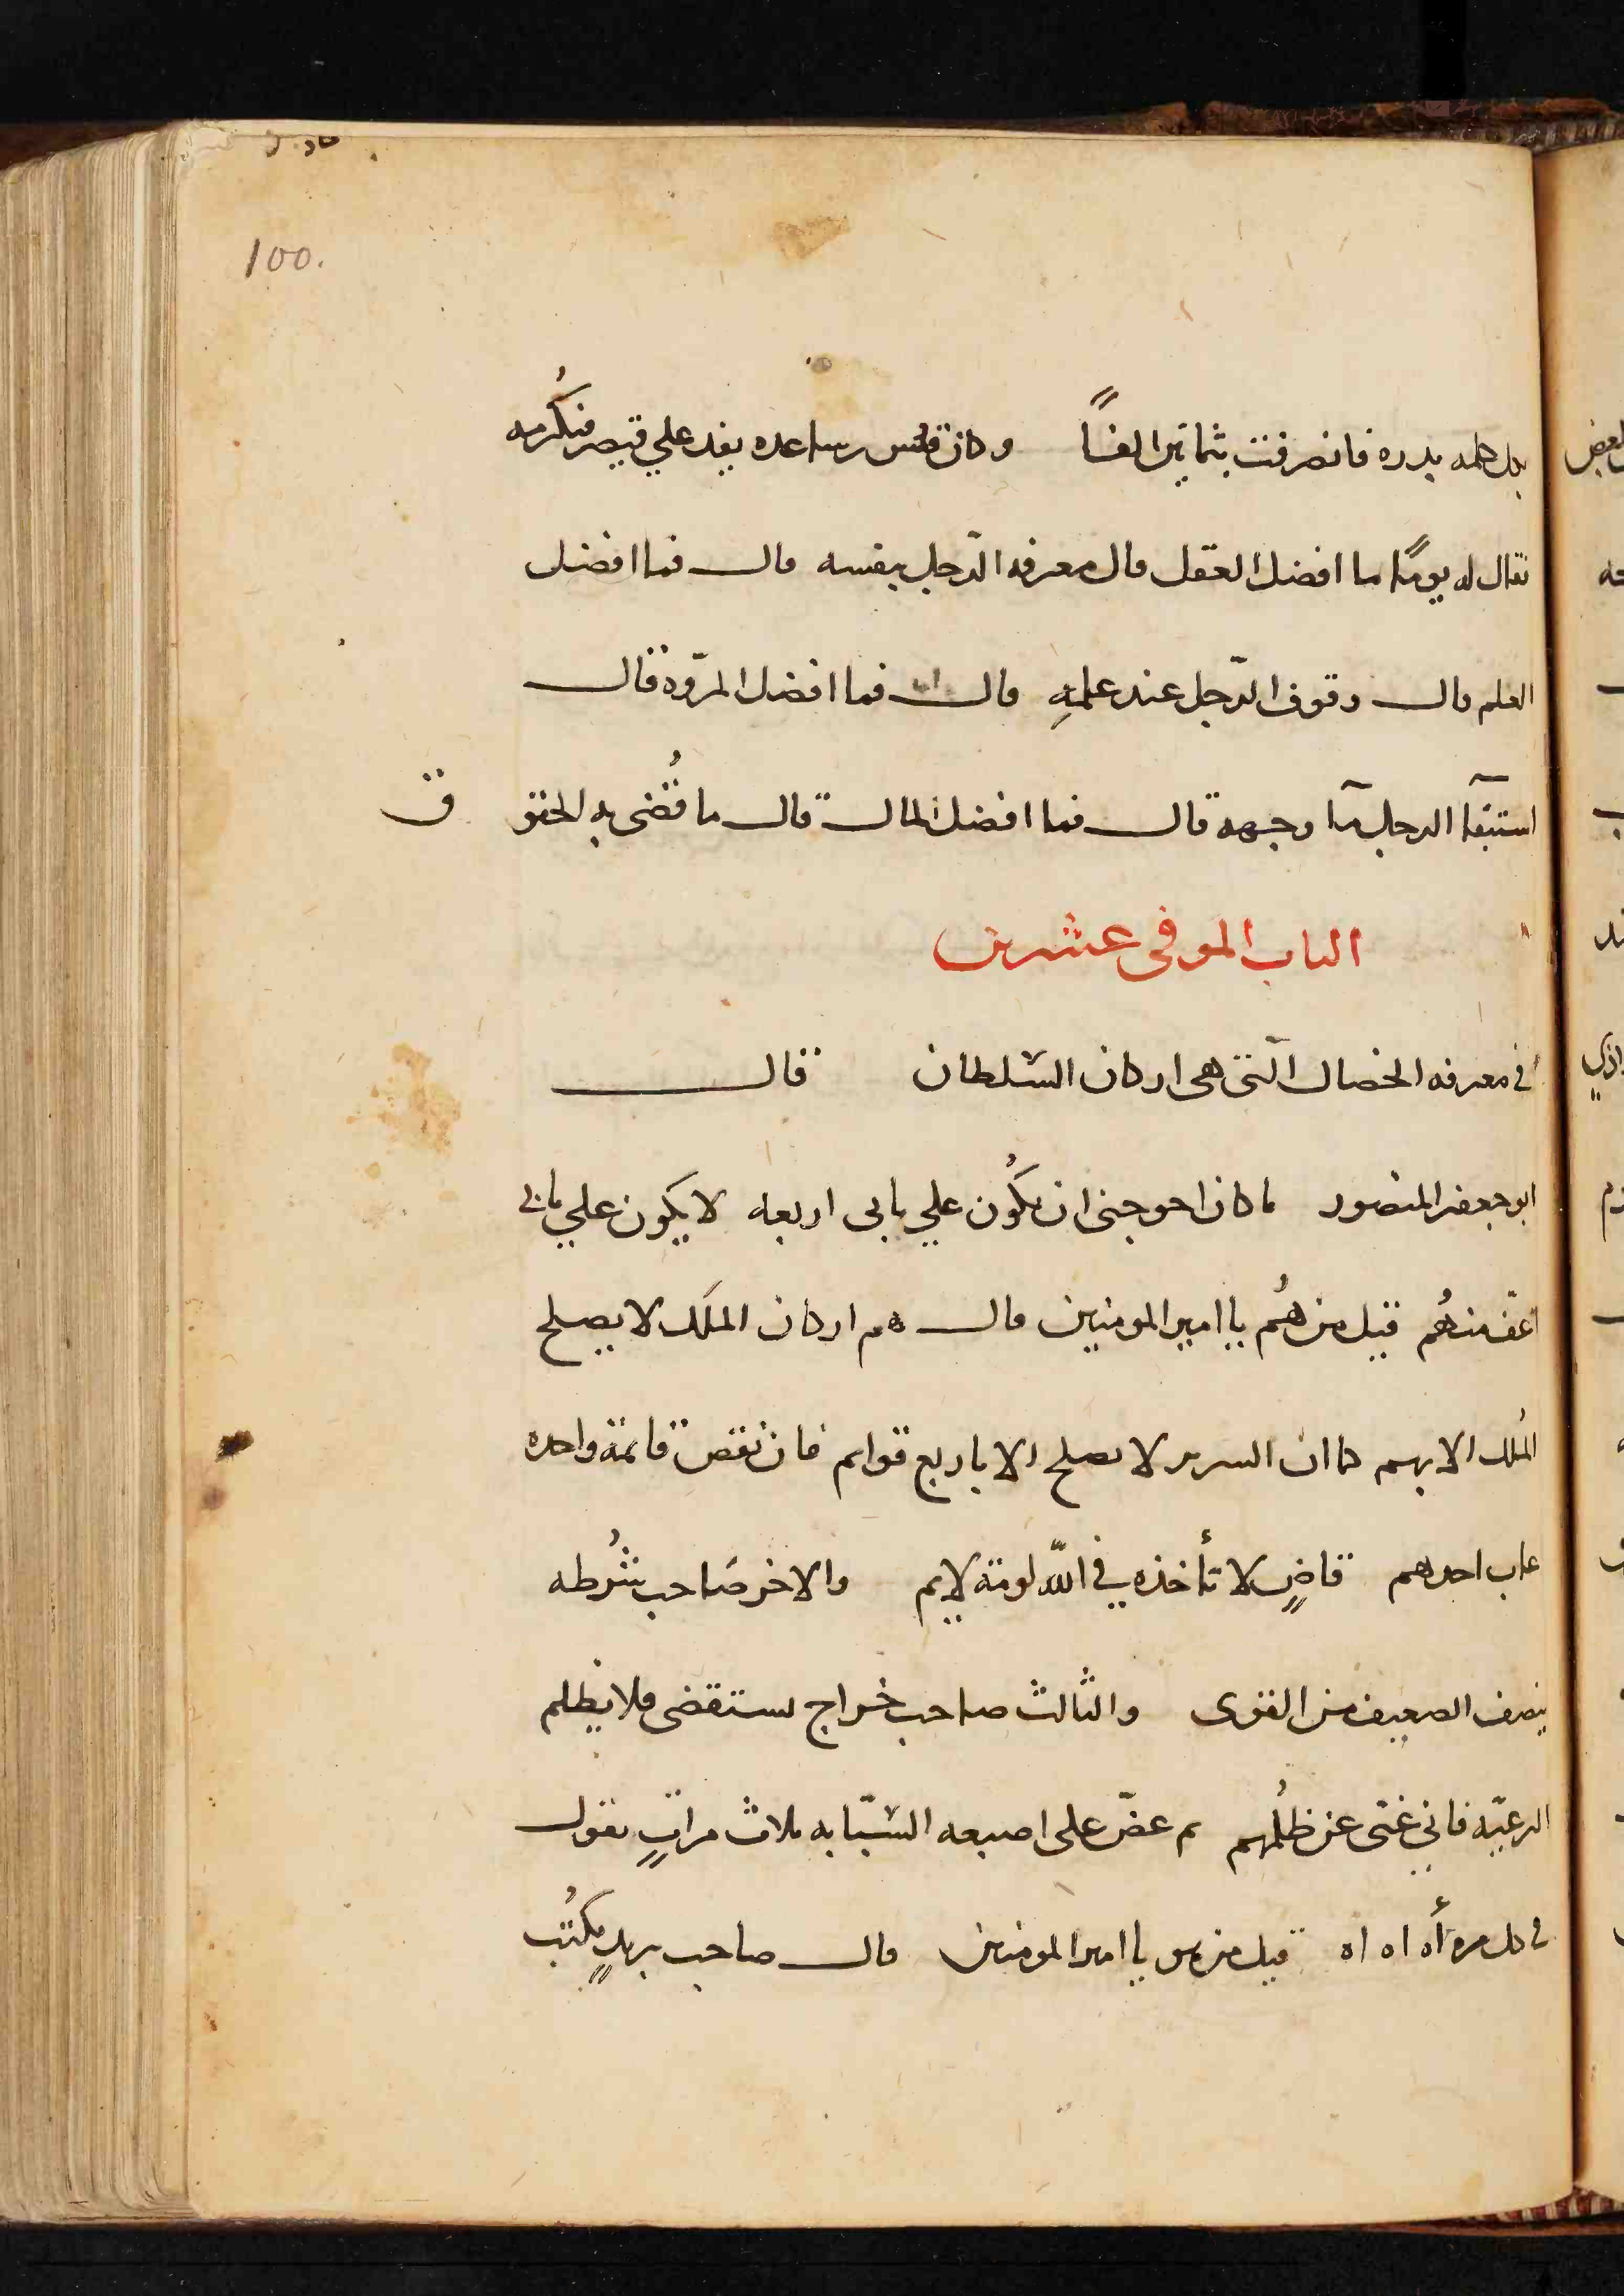 100.
بكل كلمه بدره فانصرفت بثمانين الفاً وكان قس بن ساعده يفد علي قيصر فيكُرمه
فقال له يومًا ما افضل العقل قال معرفه الرّجل بنفسه قال فما افضل
العلم قال وقوف الرّجل عند علمهِ قال فما افضل المروّه قال
استبقآ الرجل مآ وجهه قال فما افضل المال قال ما قُضى به الحقوق
الباب الموفى عشرين
فى معرفه الخصال الّتى هى اركان السّلطان قال
ابو جعفر المنصور ما كان احوجنى ان يكُون علي بابى اربعه لا يكون علي بابى
اعّف منهُم قيل من هُم يا امير المومنين قال هم اركان الملَك لا يصلح
المُلك الا بهم كما ان السرير لا يصلح الا باربع قوايم فان نقص قائمة واحده
عاب احدهم قاضٍ لا تأخذه في اللّه لومة لايم والاخر صَاحب شُرطه
ينصف الضعيف من القوى والثالث صاحب خراج يستقضى ولا يظلم
الرعيّه فاني غنّى عن ظُلمهم ثم عضّ على اصبعه السّبّابه ثلاث مراتٍ يقول
فى كل مره أه اه اه قيل من هو يا امير المومنين قال صاحب بريدٍ يكتُب